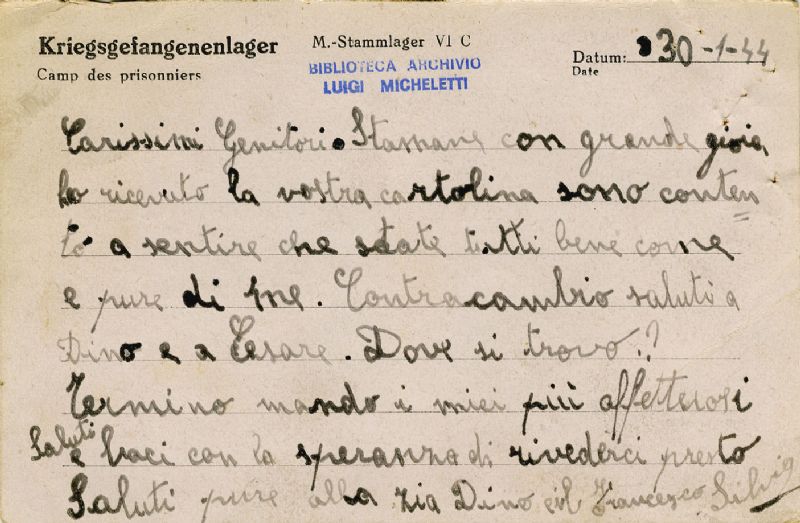 Kriegsgefangenenlager
Camp des prisonniers
M.-Stammlager VI C
BIBLIOTECA ARCHIVIO
LUIGI MICHELETTI
Datum: 30-1-44
Date
Carissimi Genitori. Stamane con grande gioia
ho ricevuto la vostra cartolina sono conten
to a sentire che state tutti bene come
e pure di me. Contracambio saluti a
Dino e a Cesare. Dove si trovo.?
Termino mando i miei più affettuosi
Saluti
e baci con la speranza di rivederci presto
Saluti pure alla zia Dino e il Francesco Silvio